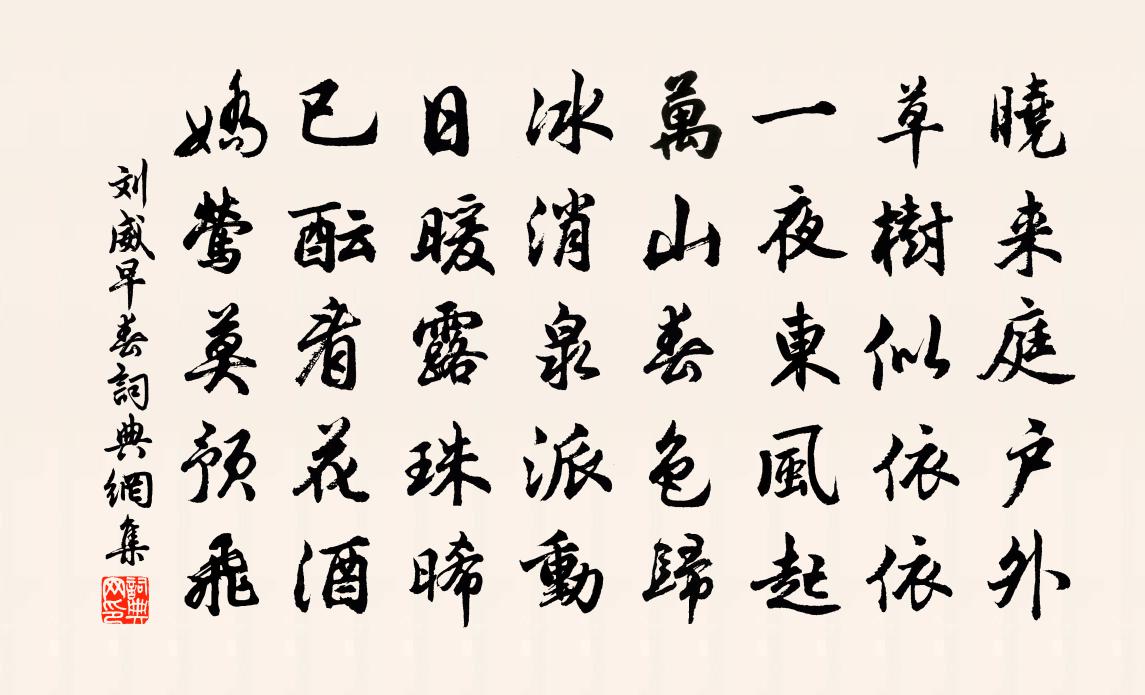 曉来庭户外
草樹似依依
一夜東風起
萬山春色歸
冰消泉派動
日暖露珠晞
已酝看花酒
嬌莺莫预飛
刘威早春詞典網集
詞典网印